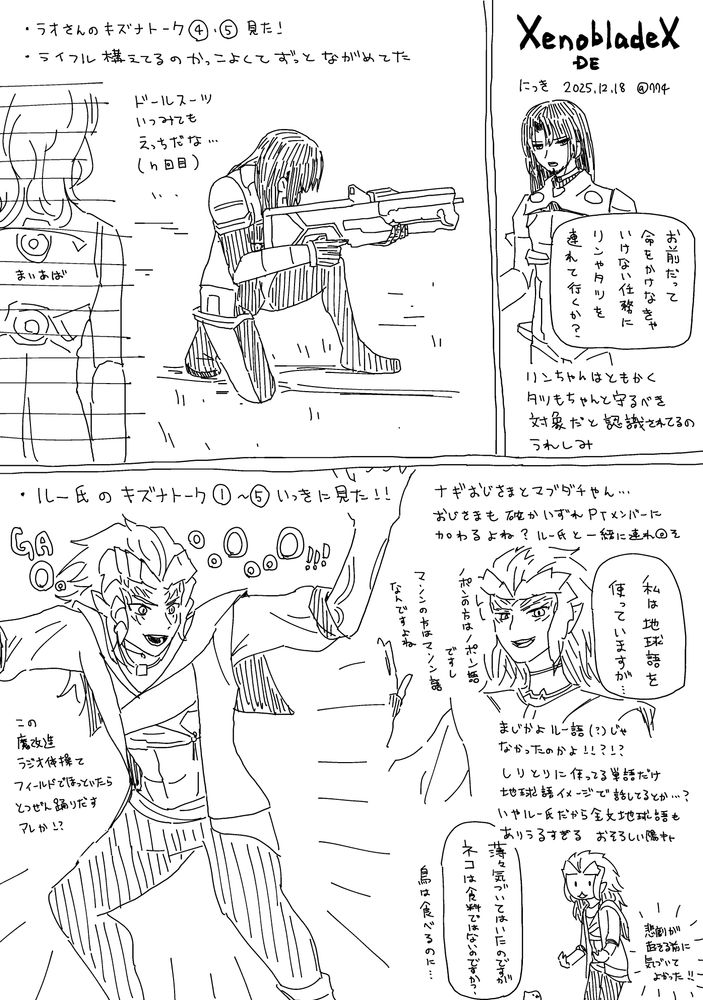 XenobladeX
DE
にっき 2025.12.18 @774
・ラオさんのキズナトーク④、⑤見た！
・ライフル構えてるのかっこよくてずっとながめてた
ドールスーツ
いつみても
えっちだな…
(n回目)
まいあば
お前だって
命をかけなきゃ
いけない任務に
リンやタツを
連れて行くか？
リンちゃんはともかく
タツもちゃんと守るべき
対象だと認識されてるの
うれしみ
・ルー氏のキズナトーク①～⑤いっきに見た！！
GAO。。oOOOO!!!
この
魔改造
ラジオ体操て
フィールドでほっといたら
とつぜん踊りだす
アレか！？
ナギおじさまとマブダチやん…
おじさまも確かいずれPTメンバーに
加わるよね？ルー氏と一緒に連れ回そ
私は地球語を
使っていますが…
ノポンの方はノポン語
ですし
マ・ノンの方はマ・ノン語
なんですよね
まじかよルー語(？)じゃ
なかったのかよ！！？！？
しりとりに使ってる単語だけ
地球語イメージで話してるとか…？
いやルー氏だから全文地球語も
ありうるすぎる おそろしい陽キャ
薄々気づいてはいたのですが
ネコは食料ではないのですか？
鳥は食べるのに…
悲劇が
起きる前に
気づいて
よかった！！